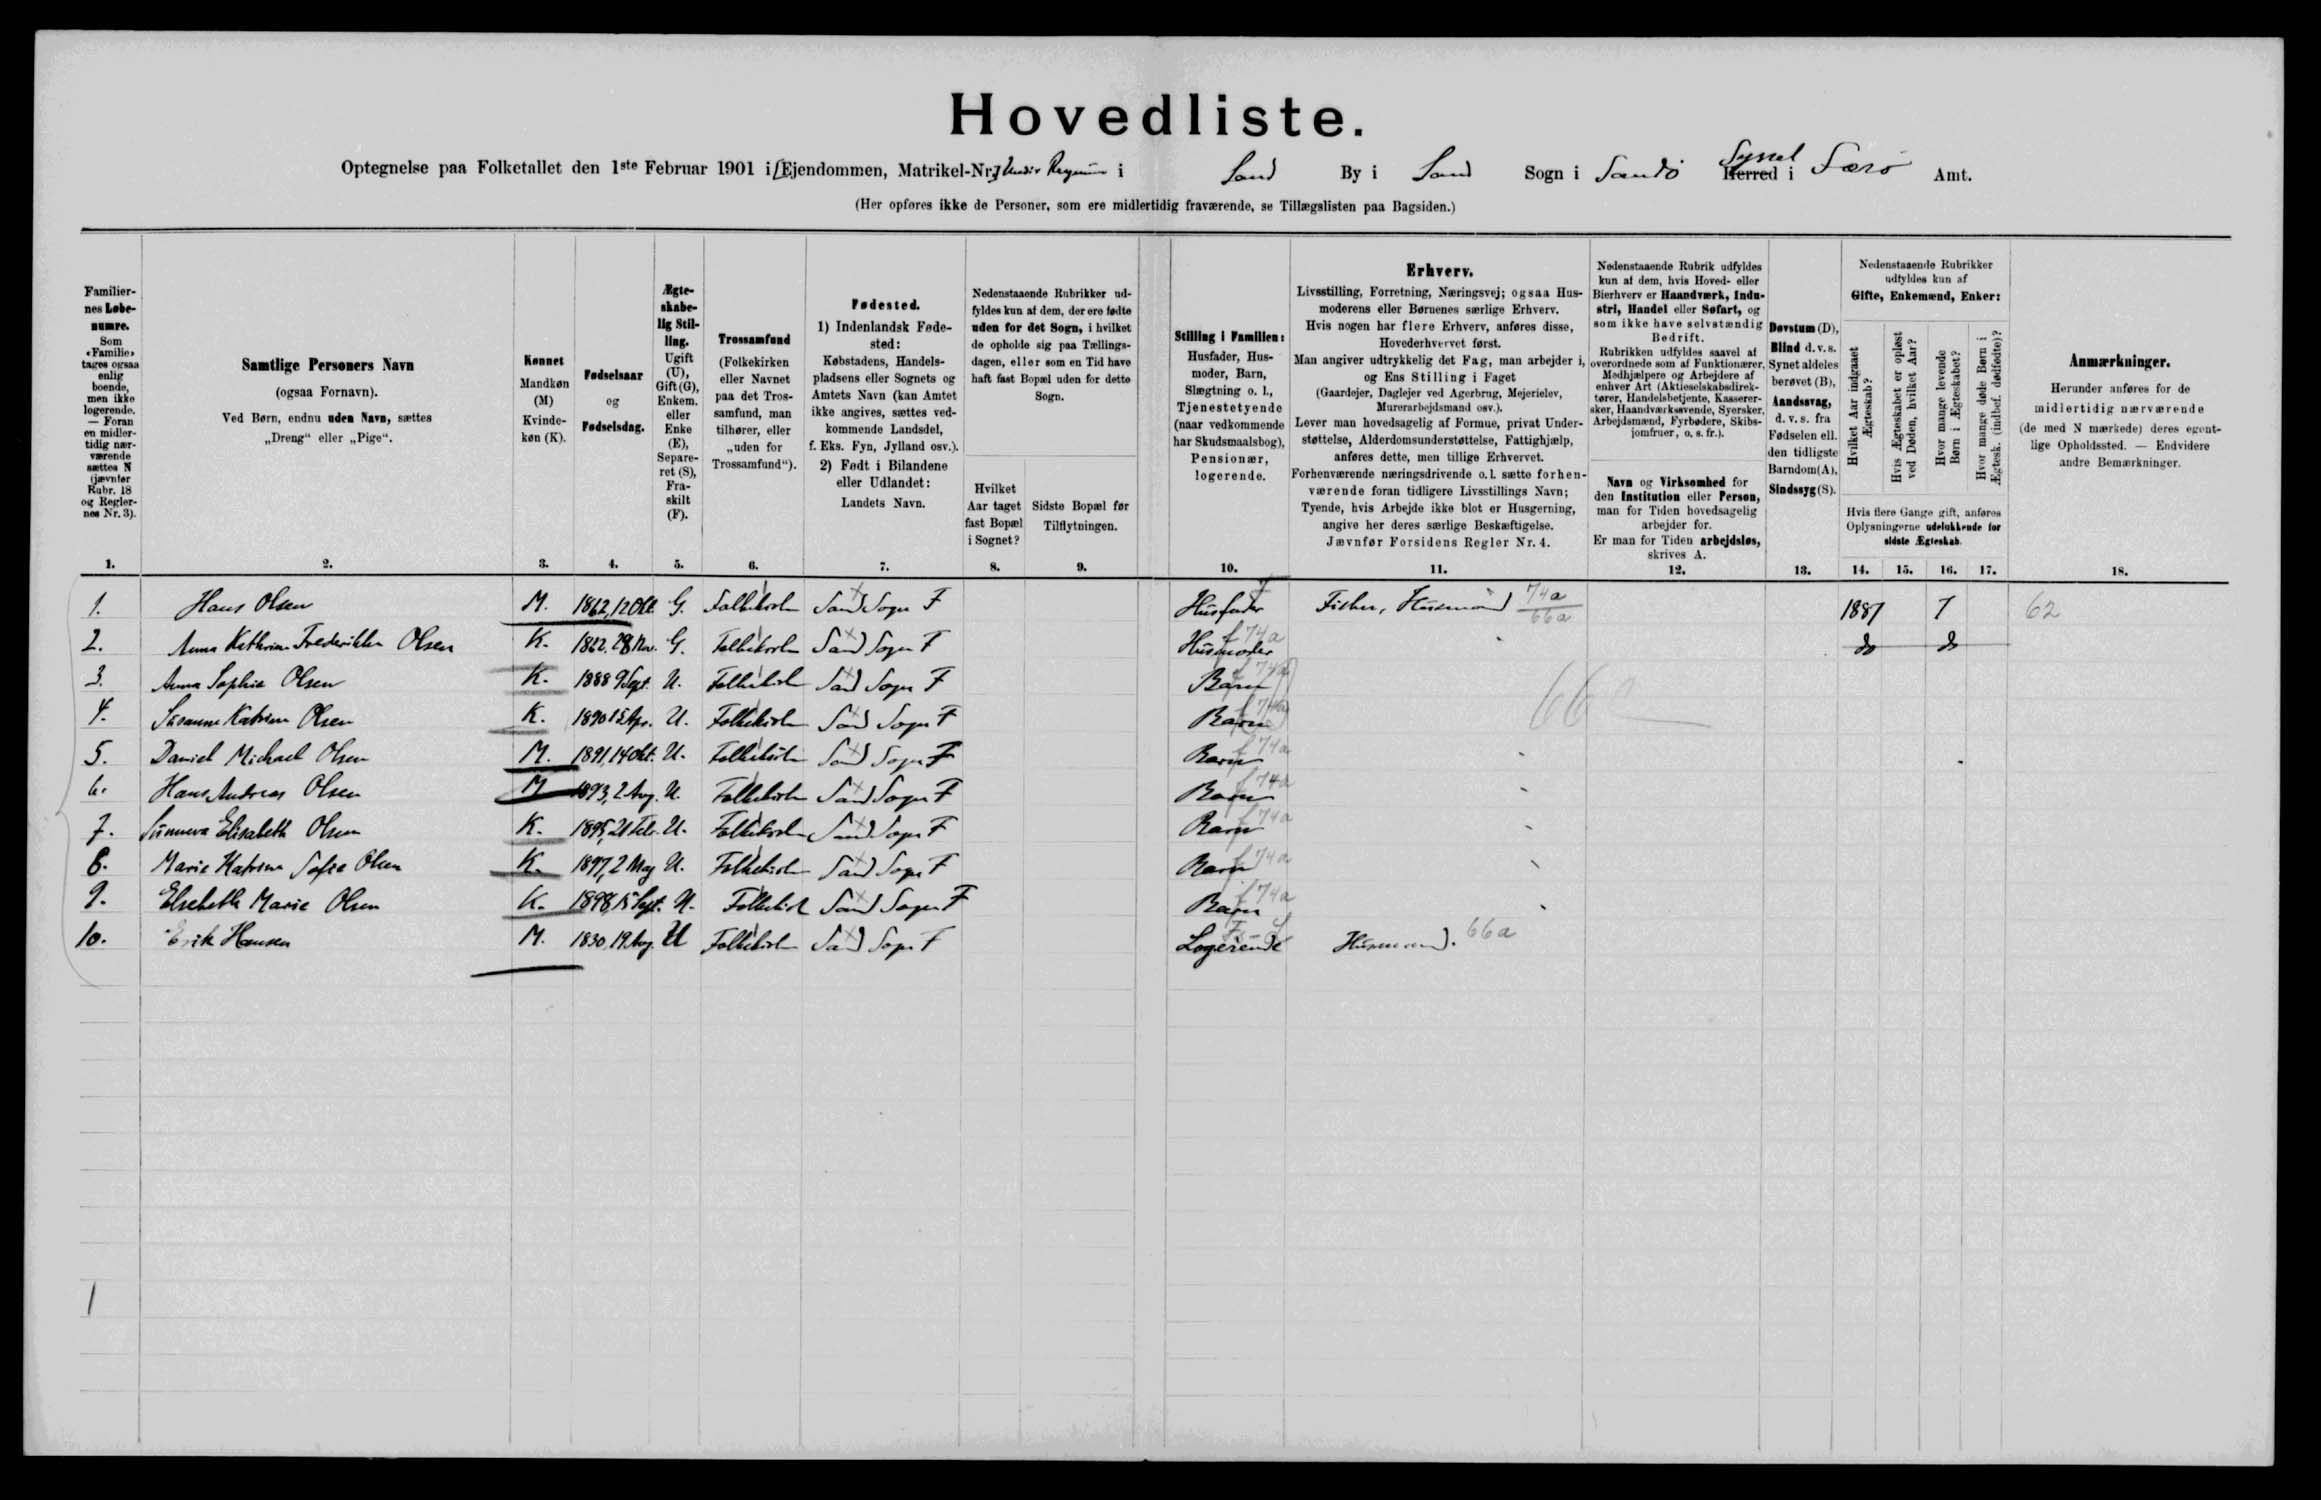 Hovedliste.
Optegnelse paa Folketallet den 1ste Februar 1901 i [Ejendommen, Matrikel-Nr.] i Sand By i Sand Sogn i Sandö Syssel Herred i Færö Amt.
(Her opføres ikke de Personer, som ere midlertidig fraværende, se Tillægslisten paa Bagsiden.)
Familier-
nes Løbe-
numre.
Som
«Familie»
tages ogsaa
enlig
boende,
men ikke
logerende.
— Foran
en midler-
tidig nær-
værende
sættes N
(jævnfør
Rubr. 18
og Regler-
nes Nr. 3).
1.
Samtlige Personers Navn
(ogsaa Fornavn).
Ved Børn, endnu uden Navn, sættes
„Dreng“ eller „Pige“.
2.
Kønnet
Mandkøn
(M)
Kvinde-
køn (K).
3.
Fødselsaar
og
Fødselsdag.
4.
Ægte-
skabe-
lig Stil-
ling.
Ugift
(U),
Gift (G),
Enkem.
eller
Enke
(E),
Separe-
ret (S),
Fra-
skilt
(F).
5.
Trossamfund
(Folkekirken
eller Navnet
paa det Tros-
samfund, man
tilhører, eller
„uden for
Trossamfund“).
6.
Fødested.
1) Indenlandsk Føde-
sted:
Købstadens, Handels-
pladsens eller Sognets og
Amtets Navn (kan Amtet
ikke angives, sættes ved-
kommende Landsdel,
f. Eks. Fyn, Jylland osv.).
2) Født i Bilandene
eller Udlandet:
Landets Navn.
7.
Nedenstaaende Rubrikker ud-
fyldes kun af dem, der ere fødte
uden for det Sogn, i hvilket
de opholde sig paa Tællings-
dagen, eller som en Tid have
haft fast Bopæl uden for dette
Sogn.
Hvilket
Aar taget
fast Bopæl
i Sognet?
8.
Sidste Bopæl før
Tilflytningen.
9.
Stilling i Familien:
Husfader, Hus-
moder, Barn,
Slægtning o. l.,
Tjenestetyende
(naar vedkommende
har Skudsmaalsbog),
Pensionær,
logerende.
10.
Erhverv.
Livsstilling, Forretning, Næringsvej; ogsaa Hus-
moderens eller Børnenes særlige Erhverv.
Hvis nogen har flere Erhverv, anføres disse,
Hovederhvervet først.
Man angiver udtrykkelig det Fag, man arbejder i,
og Ens Stilling i Faget
(Gaardejer, Daglejer ved Agerbrug, Mejerielev,
Murerarbejdsmand osv.).
Lever man hovedsagelig af Formue, privat Under-
støttelse, Alderdomsunderstøttelse, Fattighjælp,
anføres dette, men tillige Erhvervet.
Forhenværende næringsdrivende o. l. sætte forhen-
værende foran tidligere Livsstillings Navn;
Tyende, hvis Arbejde ikke blot er Husgerning,
angive her deres særlige Beskæftigelse.
Jævnfør Forsidens Regler Nr. 4.
11.
Nedenstaaende Rubrik udfyldes
kun af dem, hvis Hoved- eller
Bierhverv er Haandværk, Indu-
stri, Handel eller Søfart, og
som ikke have selvstændig
Bedrift.
Rubrikken udfyldes saavel af
overordnede som af Funktionærer,
Medhjælpere og Arbejdere af
enhver Art (Aktieselskabsdirek-
tører, Handelsbetjente, Kasserer-
sker, Haandværkssvende, Syersker,
Arbejdsmænd, Fyrbødere, Skibs-
jomfruer, o. s. fr.).
Navn og Virksomhed for
den Institution eller Person,
man for Tiden hovedsagelig
arbejder for.
Er man for Tiden arbejdsløs,
skrives A.
12.
Døvstum (D),
Blind d. v. s.
Synet aldeles
berøvet (B),
Aandssvag,
d. v. s. fra
Fødselen ell.
den tidligste
Barndom (A),
Sindssyg (S).
13.
Nedenstaaende Rubrikker
udfyldes kun af
Gifte, Enkemænd, Enker:
Hvilket Aar indgaaet
Ægteskab?
Hvis Ægteskabet er opløst
ved Døden, hvilket Aar?
Hvor mange levende
Børn i Ægteskabet?
Hvor mange døde Børn i
Ægtesk. (indbef. dødfødte)?
Hvis flere Gange gift, anføres
Oplysningerne udelukkende for
sidste Ægteskab.
14. 15. 16. 17.
Anmærkninger.
Herunder anføres for de
midlertidig nærværende
(de med N mærkede) deres egent-
lige Opholdssted. — Endvidere
andre Bemærkninger.
18.
1. Hans Olsen M. 1862, 12 Okt. G. Folkekirken Sand Sogn F Husfader Fisker, Husmand 74a 66a 1887 7 62
2. Anna Kathrine Frederikke Olsen K. 1862, 28 Nov. G. Folkekirken Sand Sogn F Husmoder f 74a do do
3. Anna Sophie Olsen K. 1888 9 Sept. U. Folkekirken Sand Sogn F Barn f 74a
4. Susanne Katrine Olsen K. 1890 15 Apr. U. Folkekirken Sand Sogn F Barn f 74a 66
5. Daniel Michael Olsen M. 1891, 14 Okt. U. Folkekirken Sand Sogn F Barn f 74a
6. Hans Andreas Olsen M 1893, 2 Aug. U. Folkekirken Sand Sogn F Barn f 74a
7. Sunneva Elisabeth Olsen K. 1895, 21 Febr. U. Folkekirken Sand Sogn F Barn f 74a
8. Marie Katrine Sofie Olsen K. 1897, 2 Maj U. Folkekirken Sand Sogn F Barn f 74a
9. Elsebeth Marie Olsen K. 1898, 15 Sept. U. Folkekirk Sand Sogn F Barn f 74a
10. Erik Hansen M. 1830, 19 Aug. U Folkekirken Sand Sogn F Logerende Husmand. 66a